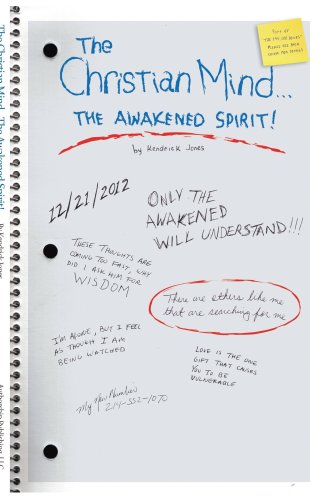 The
Christian Mind...
THE AWAKENED SPIRIT!
by Kendrick Jones
Part of
"THE 144,000 SERIES"
Please see back
cover for details
12/21/2012
ONLY THE
AWAKENED
WILL UNDERSTAND!!!
THESE THOUGHTS ARE
COMING TOO FAST, WHY
DID I ASK HIM FOR
WISDOM
There are others like me
that are searching for me
I'M ALONE, BUT I FEEL
AS THOUGH I AM
BEING WATCHED
LOVE IS THE ONE
GIFT THAT CAUSES
YOU TO BE
VULNERABLE
My New Number
214-552-1070
The Christian Mind... The Awakened Spirit!
By Kendrick Jones
Authorship Publishing, LLC